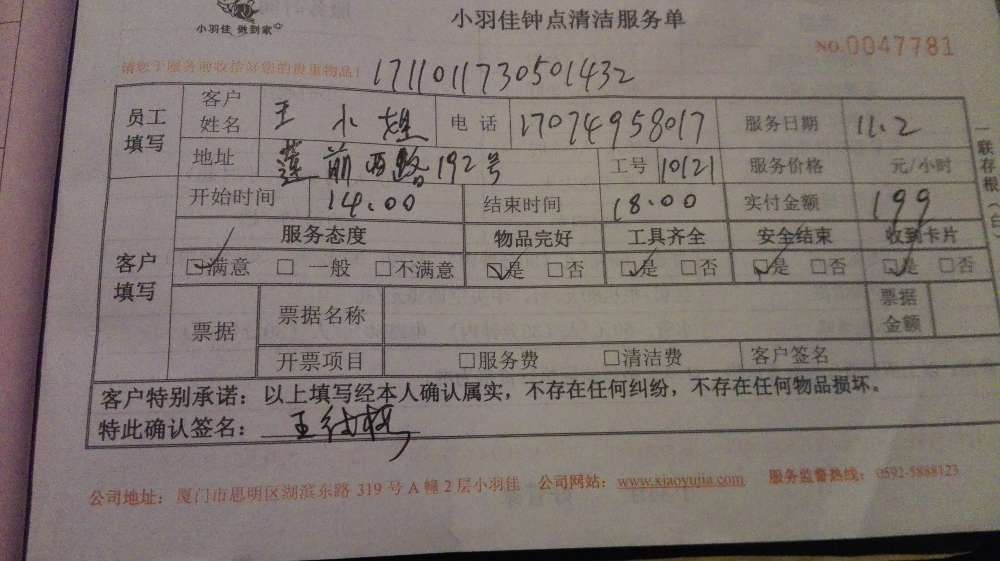 小羽佳 做到家
小羽佳钟点清洁服务单
NO.0047781
请您于服务前收拾好您的贵重物品!
1711011730501432
员工填写 客户姓名 王小姐 电话 17074958017 服务日期 11.2
地址 莲前西路192号 工号 10121 服务价格 元/小时
客户填写 开始时间 14.00 结束时间 18.00 实付金额 199
服务态度 物品完好 工具齐全 安全结束 收到卡片
☑满意 □一般 □不满意 ☑是 □否 ☑是 □否 ☑是 □否 ☑是 □否
票据 票据名称 票据金额
开票项目 □服务费 □清洁费 客户签名
客户特别承诺：以上填写经本人确认属实，不存在任何纠纷，不存在任何物品损坏。
特此确认签名：王
公司地址：厦门市思明区湖滨东路 319 号 A 幢 2 层小羽佳 公司网站：www.xiaoyujia.com 服务监督热线：0592-5888123
一联存根